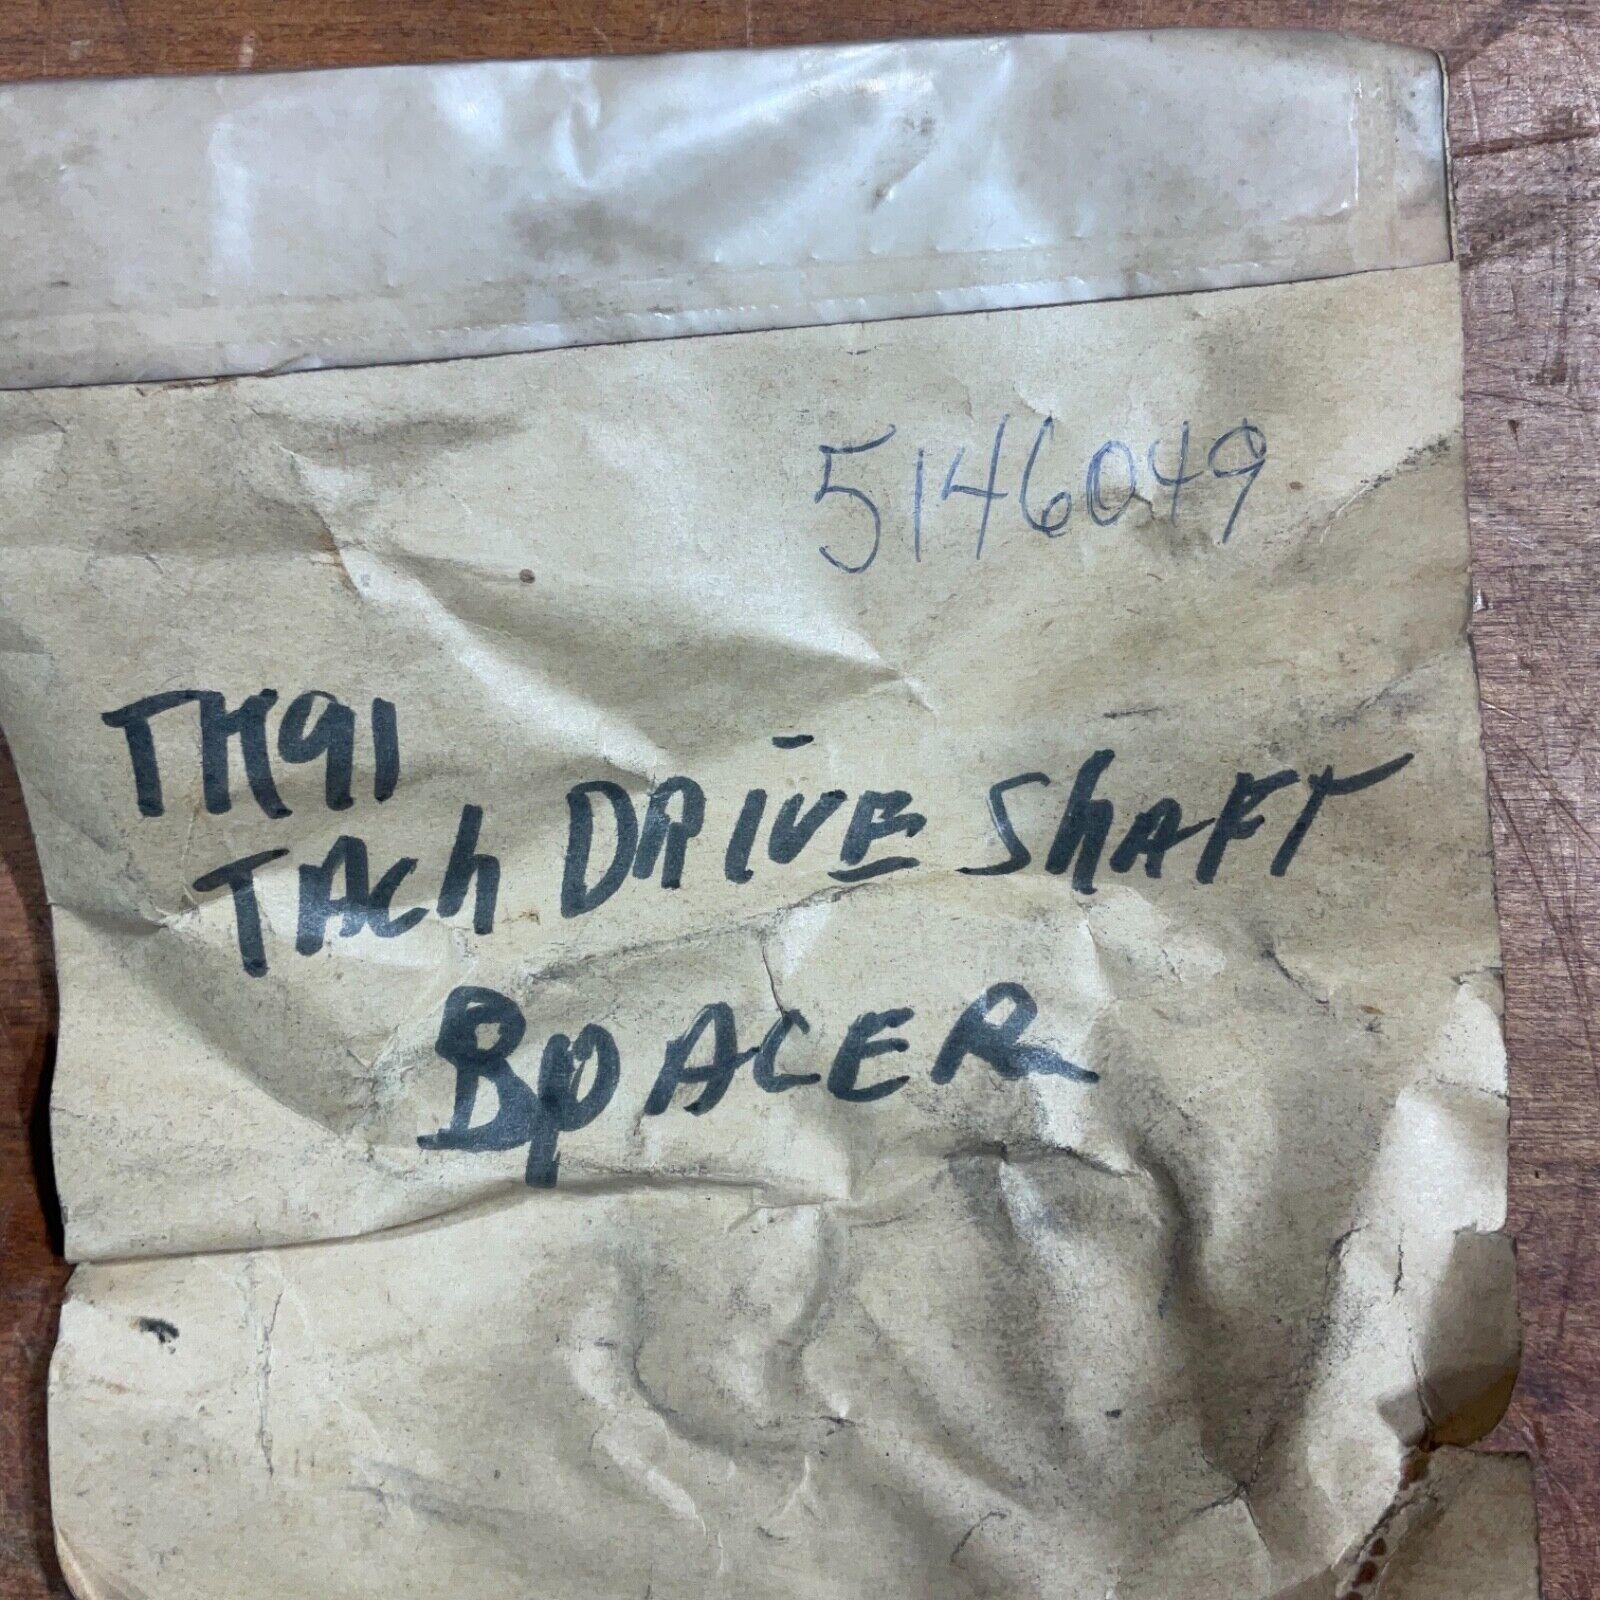 5146049
TH91
TACh DRIVE ShAFT
SpACER